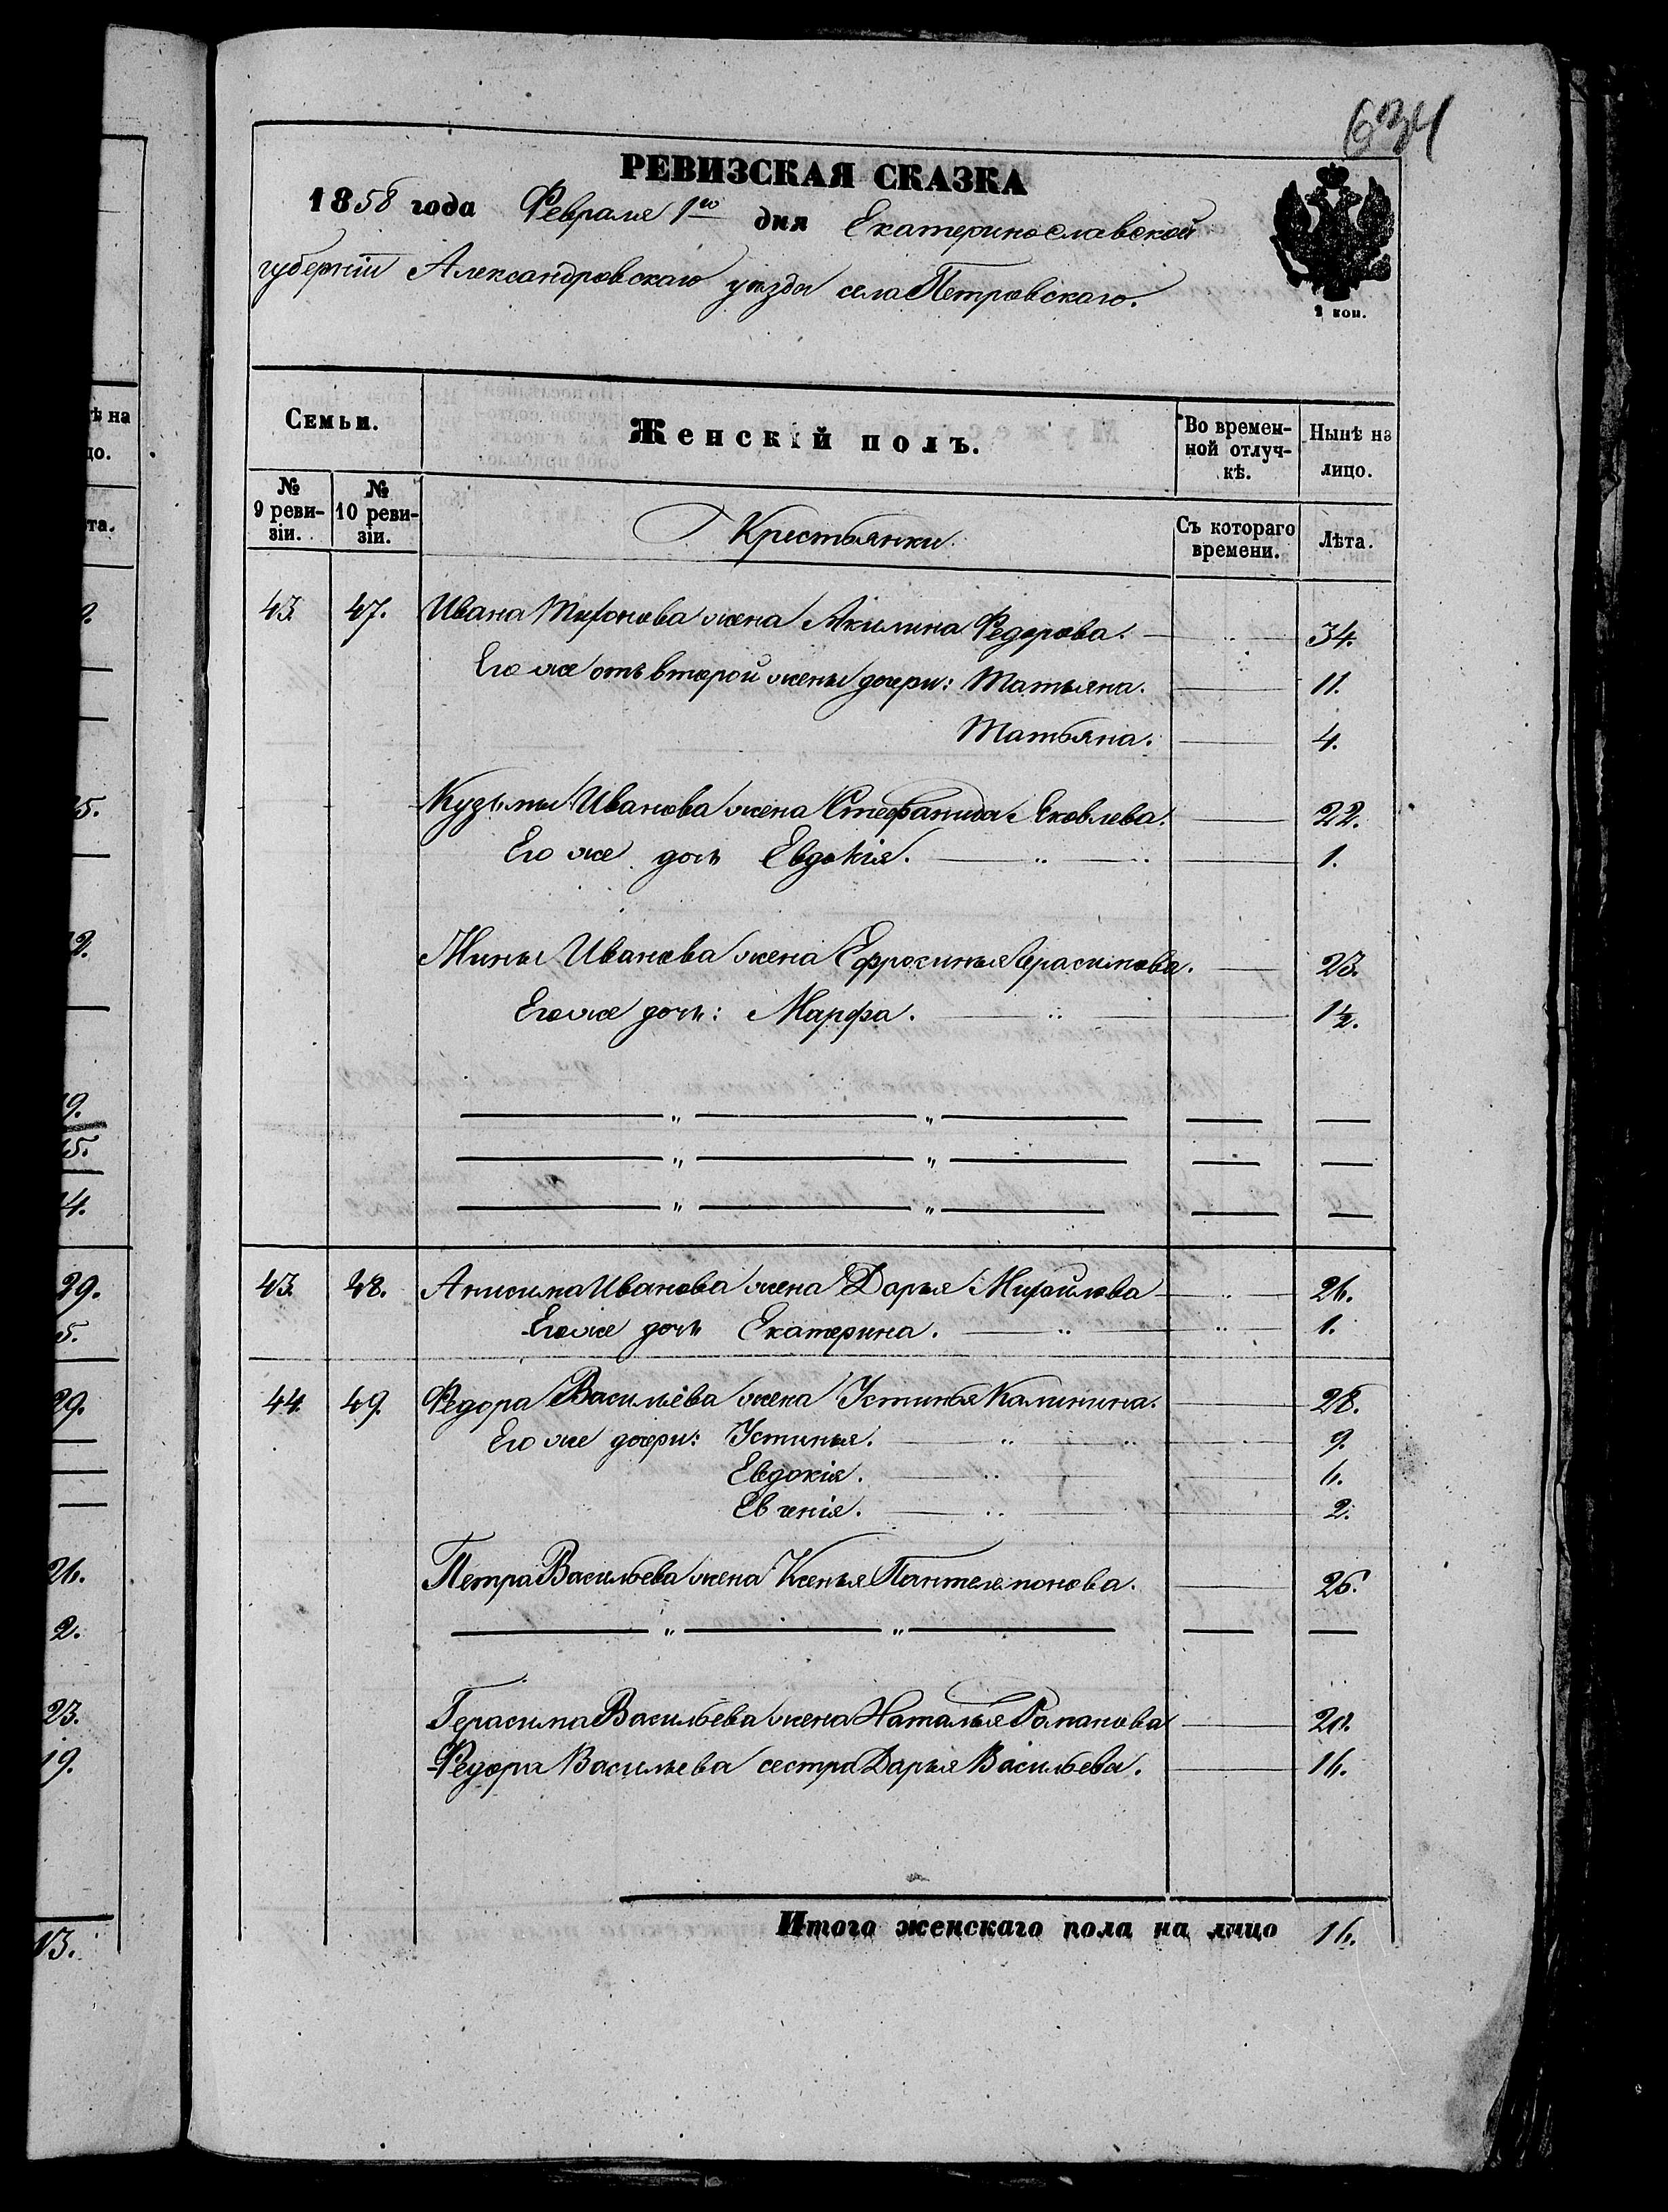 634
РЕВИЗСКАЯ СКАЗКА
1858 года Февраля 1го дня Екатеринославской
губерніи Александровскаго уѣзда села Петровскаго.
2 коп.
Семьи.
Женскій полъ.
Во времен-
ной отлуч-
кѣ.
Нынѣ на
лицо.
№
9 реви-
зіи.
№
10 реви-
зіи.
Крестьянки.
Съ котораго
времени.
Лѣта.
43. 47. Ивана Тихонова жена Акилина Федорова. 34.
Его же отъ второй жены дочери: Татьяна. 11.
Татьяна. 4.
Кузьмы Иванова жена Стефанида Яковлева. 22.
Его же дочь Евдокія. 1.
Мины Иванова жена Ефросинья Герасимова. 23.
Его же дочь: Марфа. 1½.
43. 48. Анисима Иванова жена Дарья Михайлова 26.
Его же дочь Екатерина. 1.
44. 49. Федора Васильева жена Устинья Калинина. 28.
Его же дочери: Устинья. 9.
Евдокія. 6.
Евгенія. 2.
Петра Васильева жена Ксенья Пантелемонова. 26.
Герасима Васильева жена Наталья Романова 20.
Федора Васильева сестра Дарья Васильева. 16.
Итого женскаго пола на лицо 16.
ѣ на
цо.
та.
25.
2.
19.
15.
14.
39.
5.
29.
26.
2.
23.
19.
13.